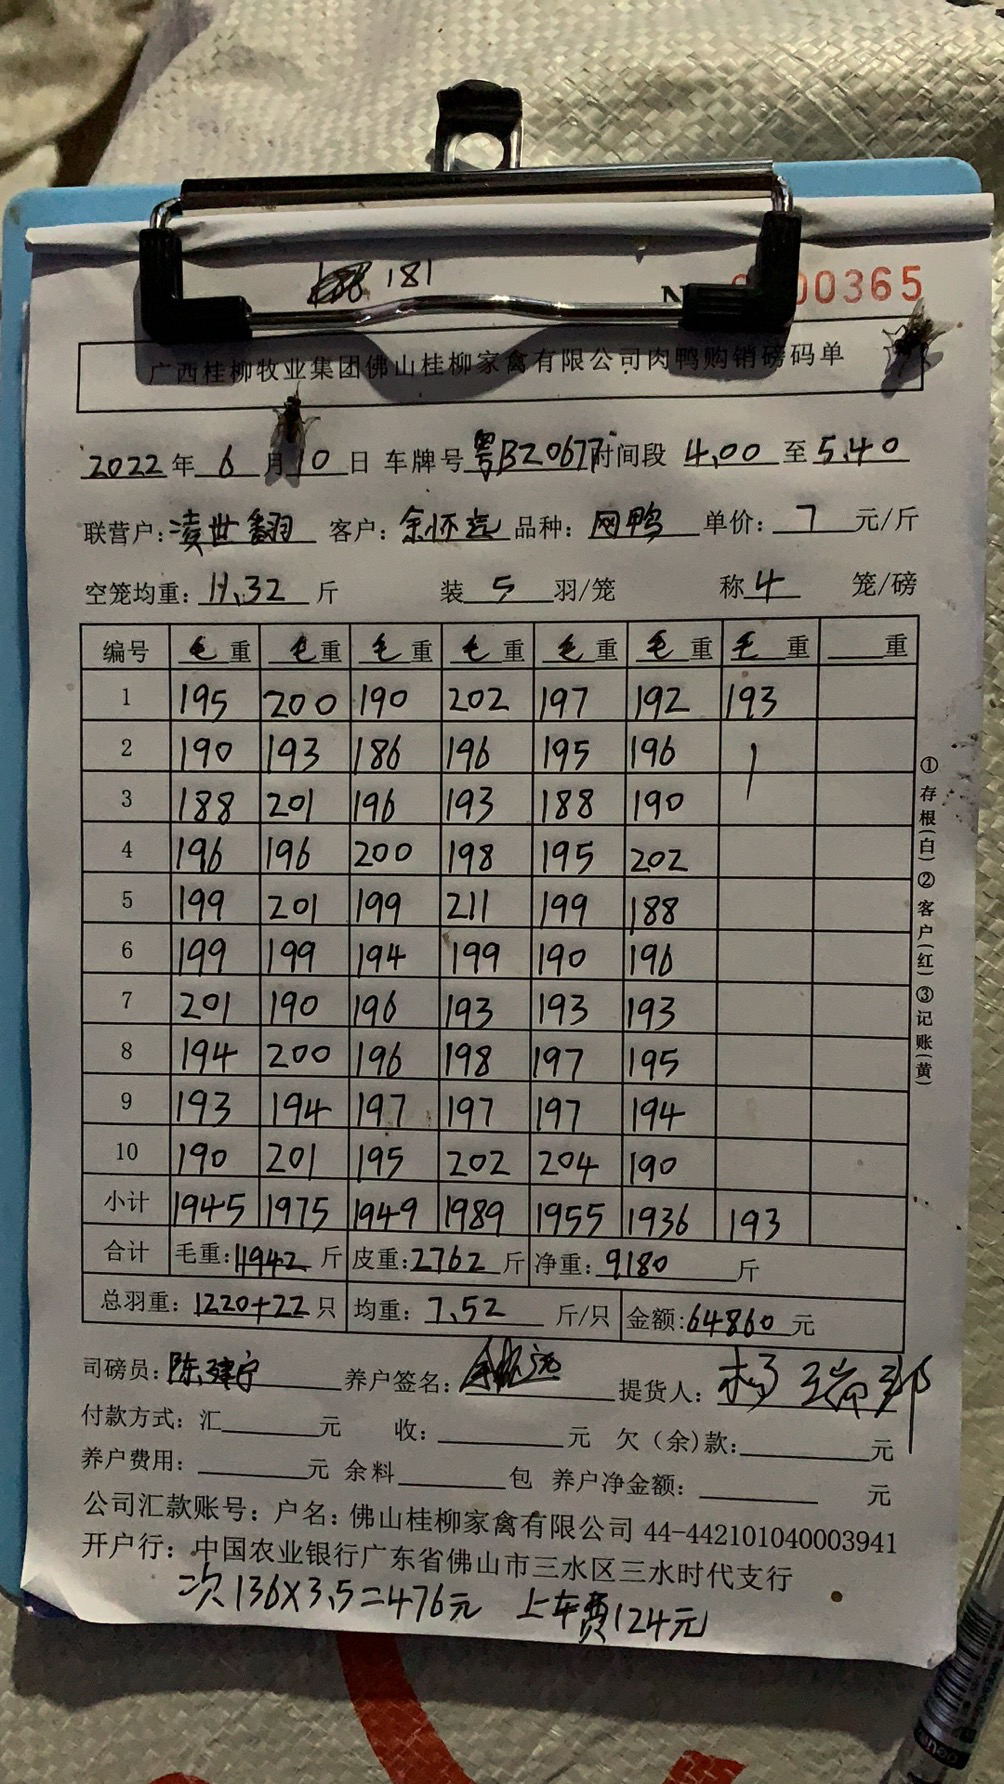 181
00365
广西桂柳牧业集团佛山桂柳家禽有限公司肉鸭购销磅码单
2022年6月10日 车牌号粤BZ067 时间段 4.00至5.40
联营户:凌世翻 客户:余怀 品种:网鸭 单价:7元/斤
空笼均重:11.32斤 装5羽/笼 称4笼/磅
编号 毛重 毛重 毛重 毛重 毛重 毛重 毛重 重
1 195 200 190 202 197 192 193
2 190 193 186 196 195 196
3 188 201 196 193 188 190
4 196 196 200 198 195 202
5 199 201 199 211 199 188
6 199 199 194 199 190 196
7 201 190 196 193 193 193
8 194 200 196 198 197 195
9 193 194 197 197 197 194
10 190 201 195 202 204 190
小计 1945 1975 1949 1989 1955 1936 193
合计 毛重:11942斤 皮重:2762斤 净重:9180斤
总羽重:1220+22只 均重:7.52斤/只 金额:64860元
①存根(白)②客户(红)③记账(黄)
司磅员:陈建宁 养户签名: 提货人:杨瑞
付款方式:汇 元 收: 元 欠(余)款: 元
养户费用: 元 余料 包 养户净金额: 元
公司汇款账号:户名:佛山桂柳家禽有限公司 44-442101040003941
开户行:中国农业银行广东省佛山市三水区三水时代支行
次136X3.5=476元 上车费124元